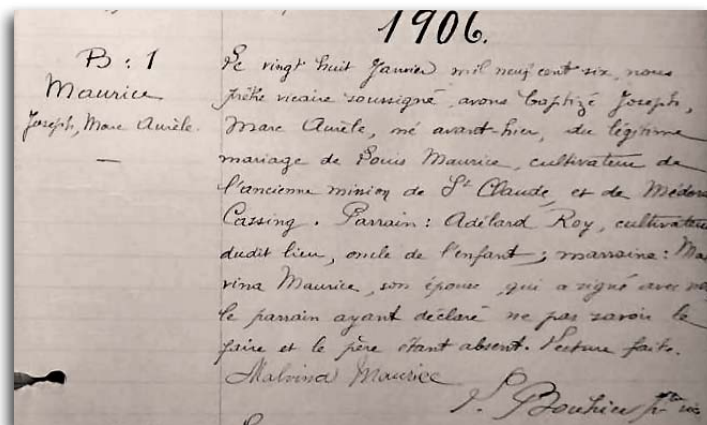 1906.
B : 1
Maurice
Joseph, Marc Aurèle.
—
Le vingt huit Janvier mil neuf cent six, nous
prêtre vicaire soussigné, avons baptizé Joseph,
Marc Aurèle, né avant-hier, du légitime
mariage de Louis Maurice, cultivateur de
l'ancienne mission de St Claude, et de Médora
Cassing. Parrain : Adélard Roy, cultivateur
dudit lieu, oncle de l'enfant ; marraine : Mal
vina Maurice, son épouse, qui a signé avec nous
le parrain ayant déclaré ne pas savoir le
faire et le père étant absent. Lecture faite.
Malvina Maurice